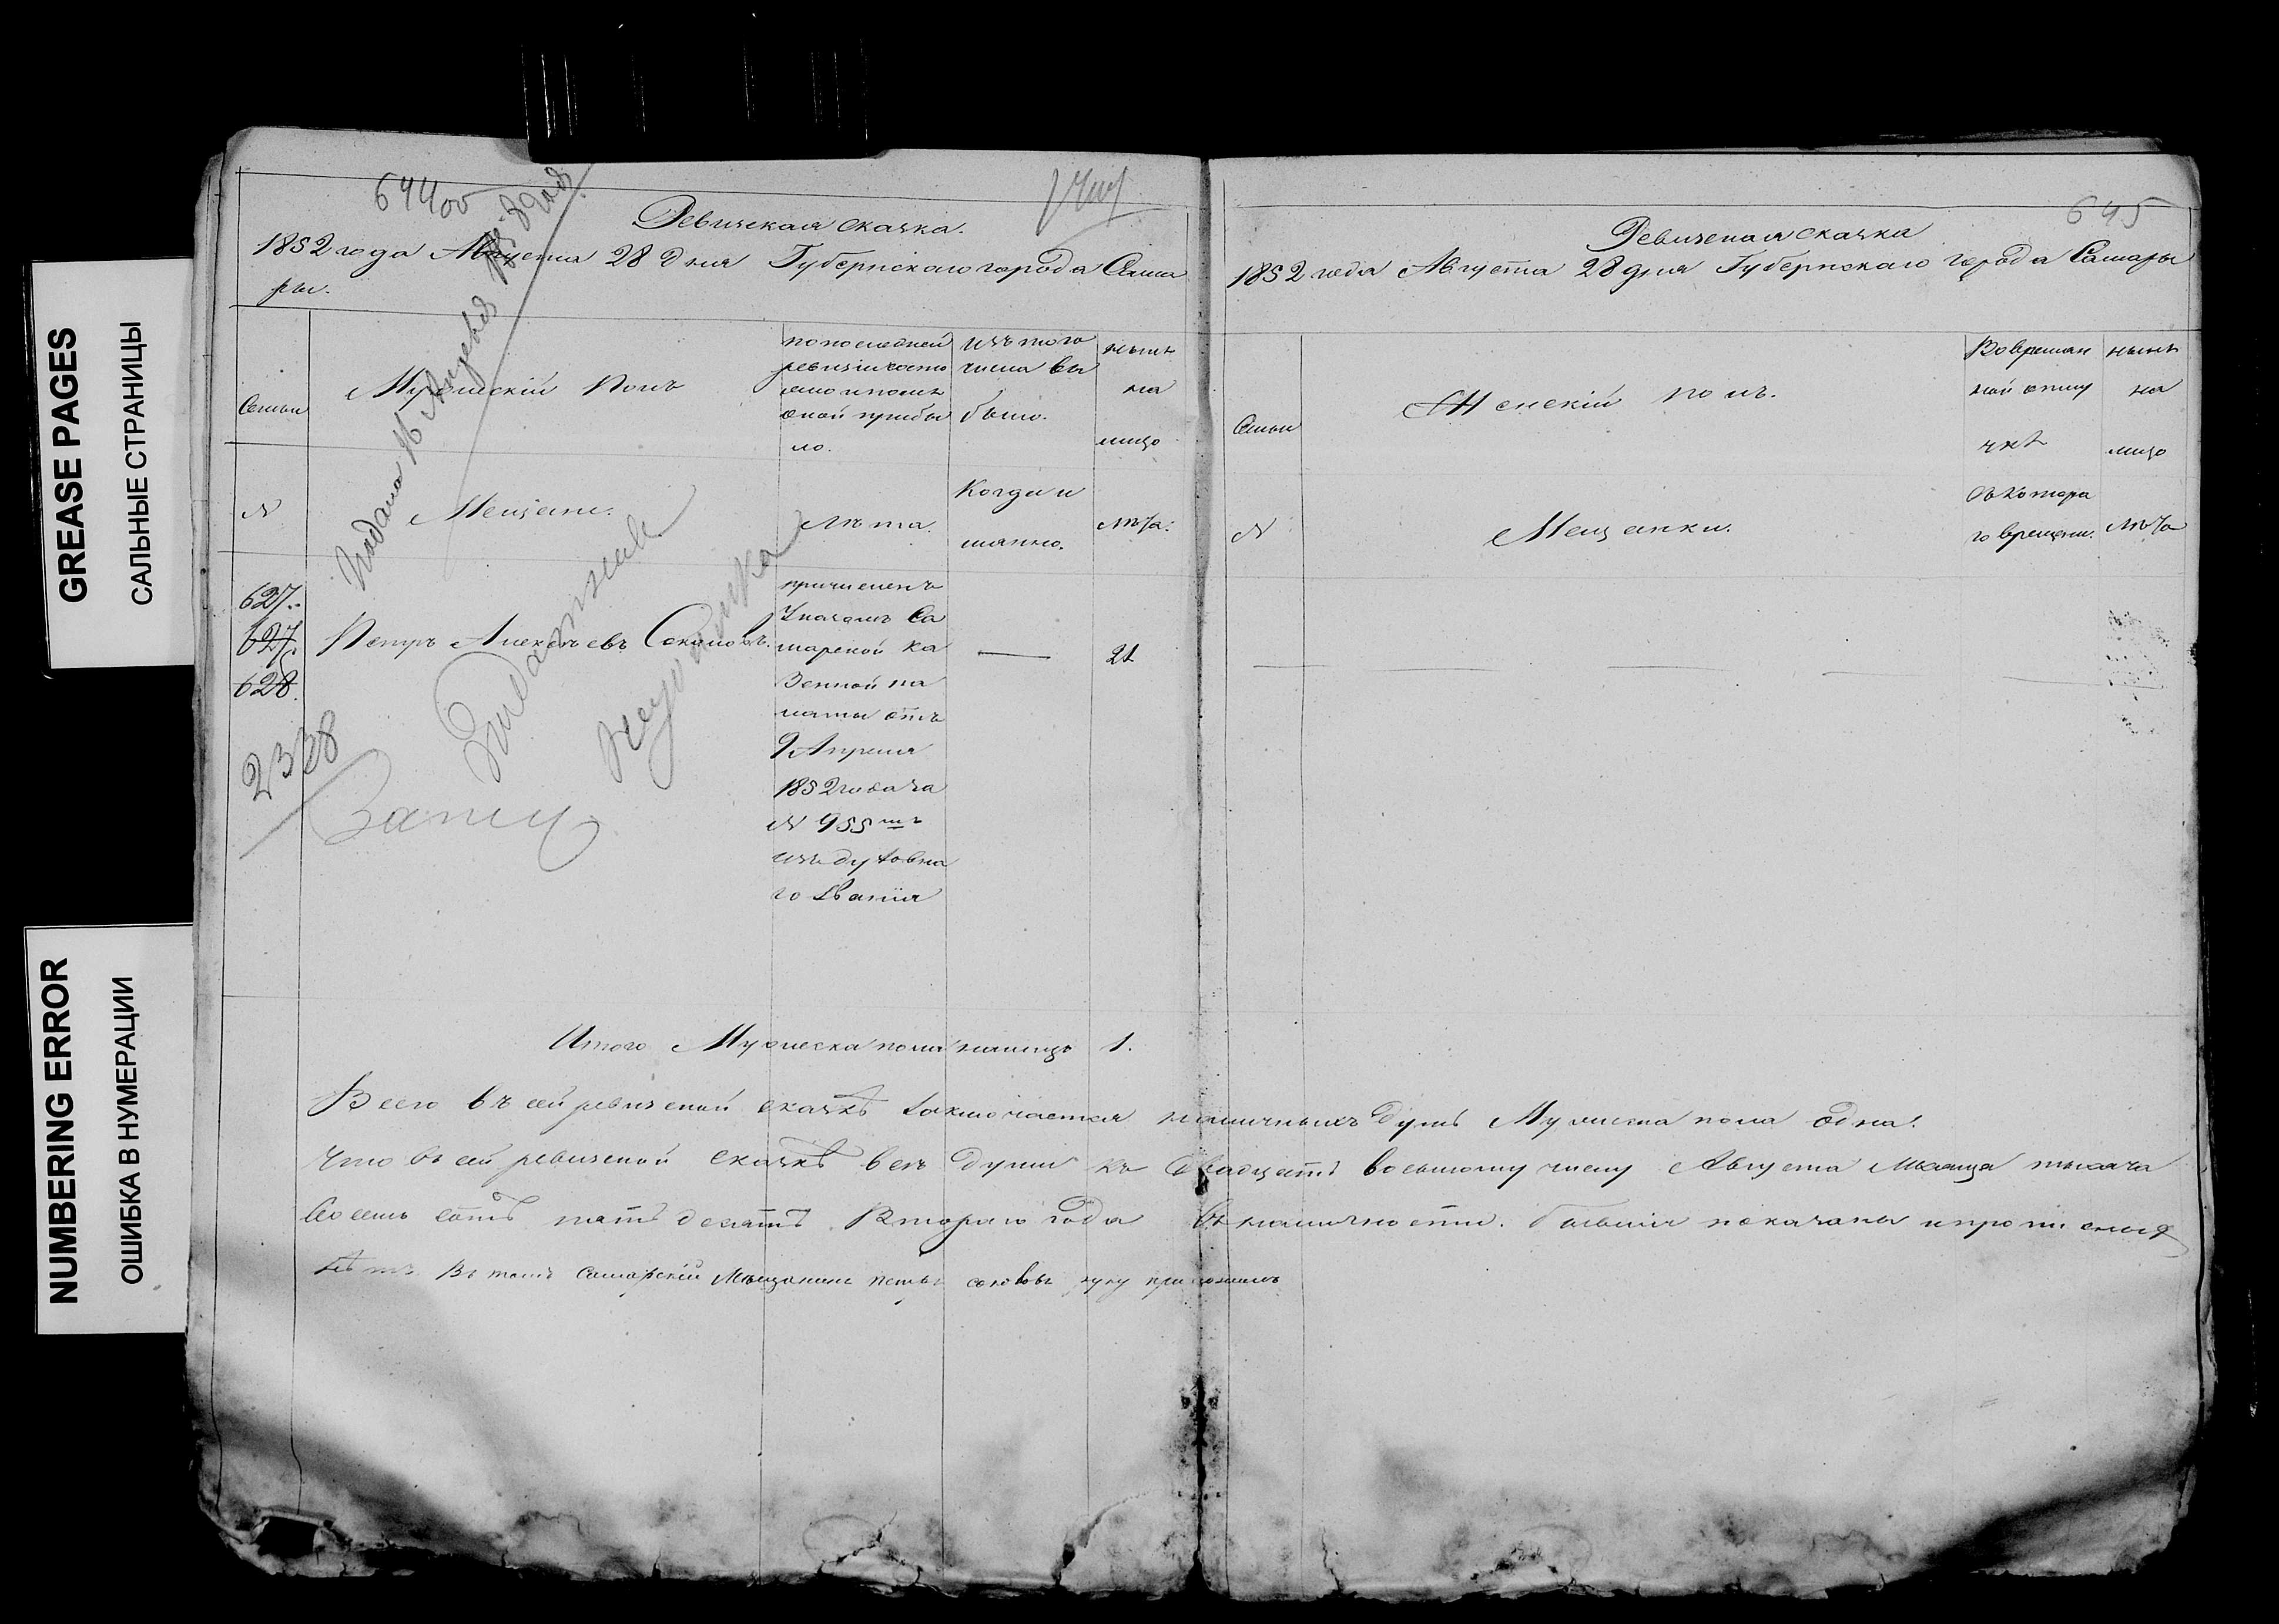 GREASE PAGES
САЛЬНЫЕ СТРАНИЦЫ
NUMBERING ERROR
ОШИБКА В НУМЕРАЦИИ
644об
Ревизская сказка.
1852 года Августа 28 дня Губернскаго города Сама
ры.
Семьи
Мужескій полъ
по последней
ревизіи состо
яло и после
оной прибы
ло.
изъ того
числа вы
было.
ныне
на
лицо
N
Мещане.
Лета.
Когда и
имянно.
лета.
Подана
627.
627.
628.
Петръ Алексеевъ Соколовъ.
причисленъ
Указомъ Са
марской Ка
зенной па
латы отъ
9 Апреля
1852 года за
N 955мъ
изъ духовна
го звания
21
2338
Итого Мужеска пола налицо 1.
645
Ревизская сказка
1852 года Августа 28 дня Губернскаго города Самары
Семьи
Женскій полъ.
Во времен
ной отлу
чкѣ
ныне
на
лицо
N
Мещанки.
Съ котора
го времени.
лета
Всего въ сей ревизской сказкѣ заключается наличныхъ душъ Мужеска пола одна.
Что въ сей ревизской сказкѣ все души къ двадцать восьмому числу Августа Месяца тысяча
восемь сотъ пятьдесятъ втораго года въ наличности бывшия показаны и прописных
нѣтъ Въ томъ Самарскій Мѣщанинъ Петръ Соколовъ руку приложилъ